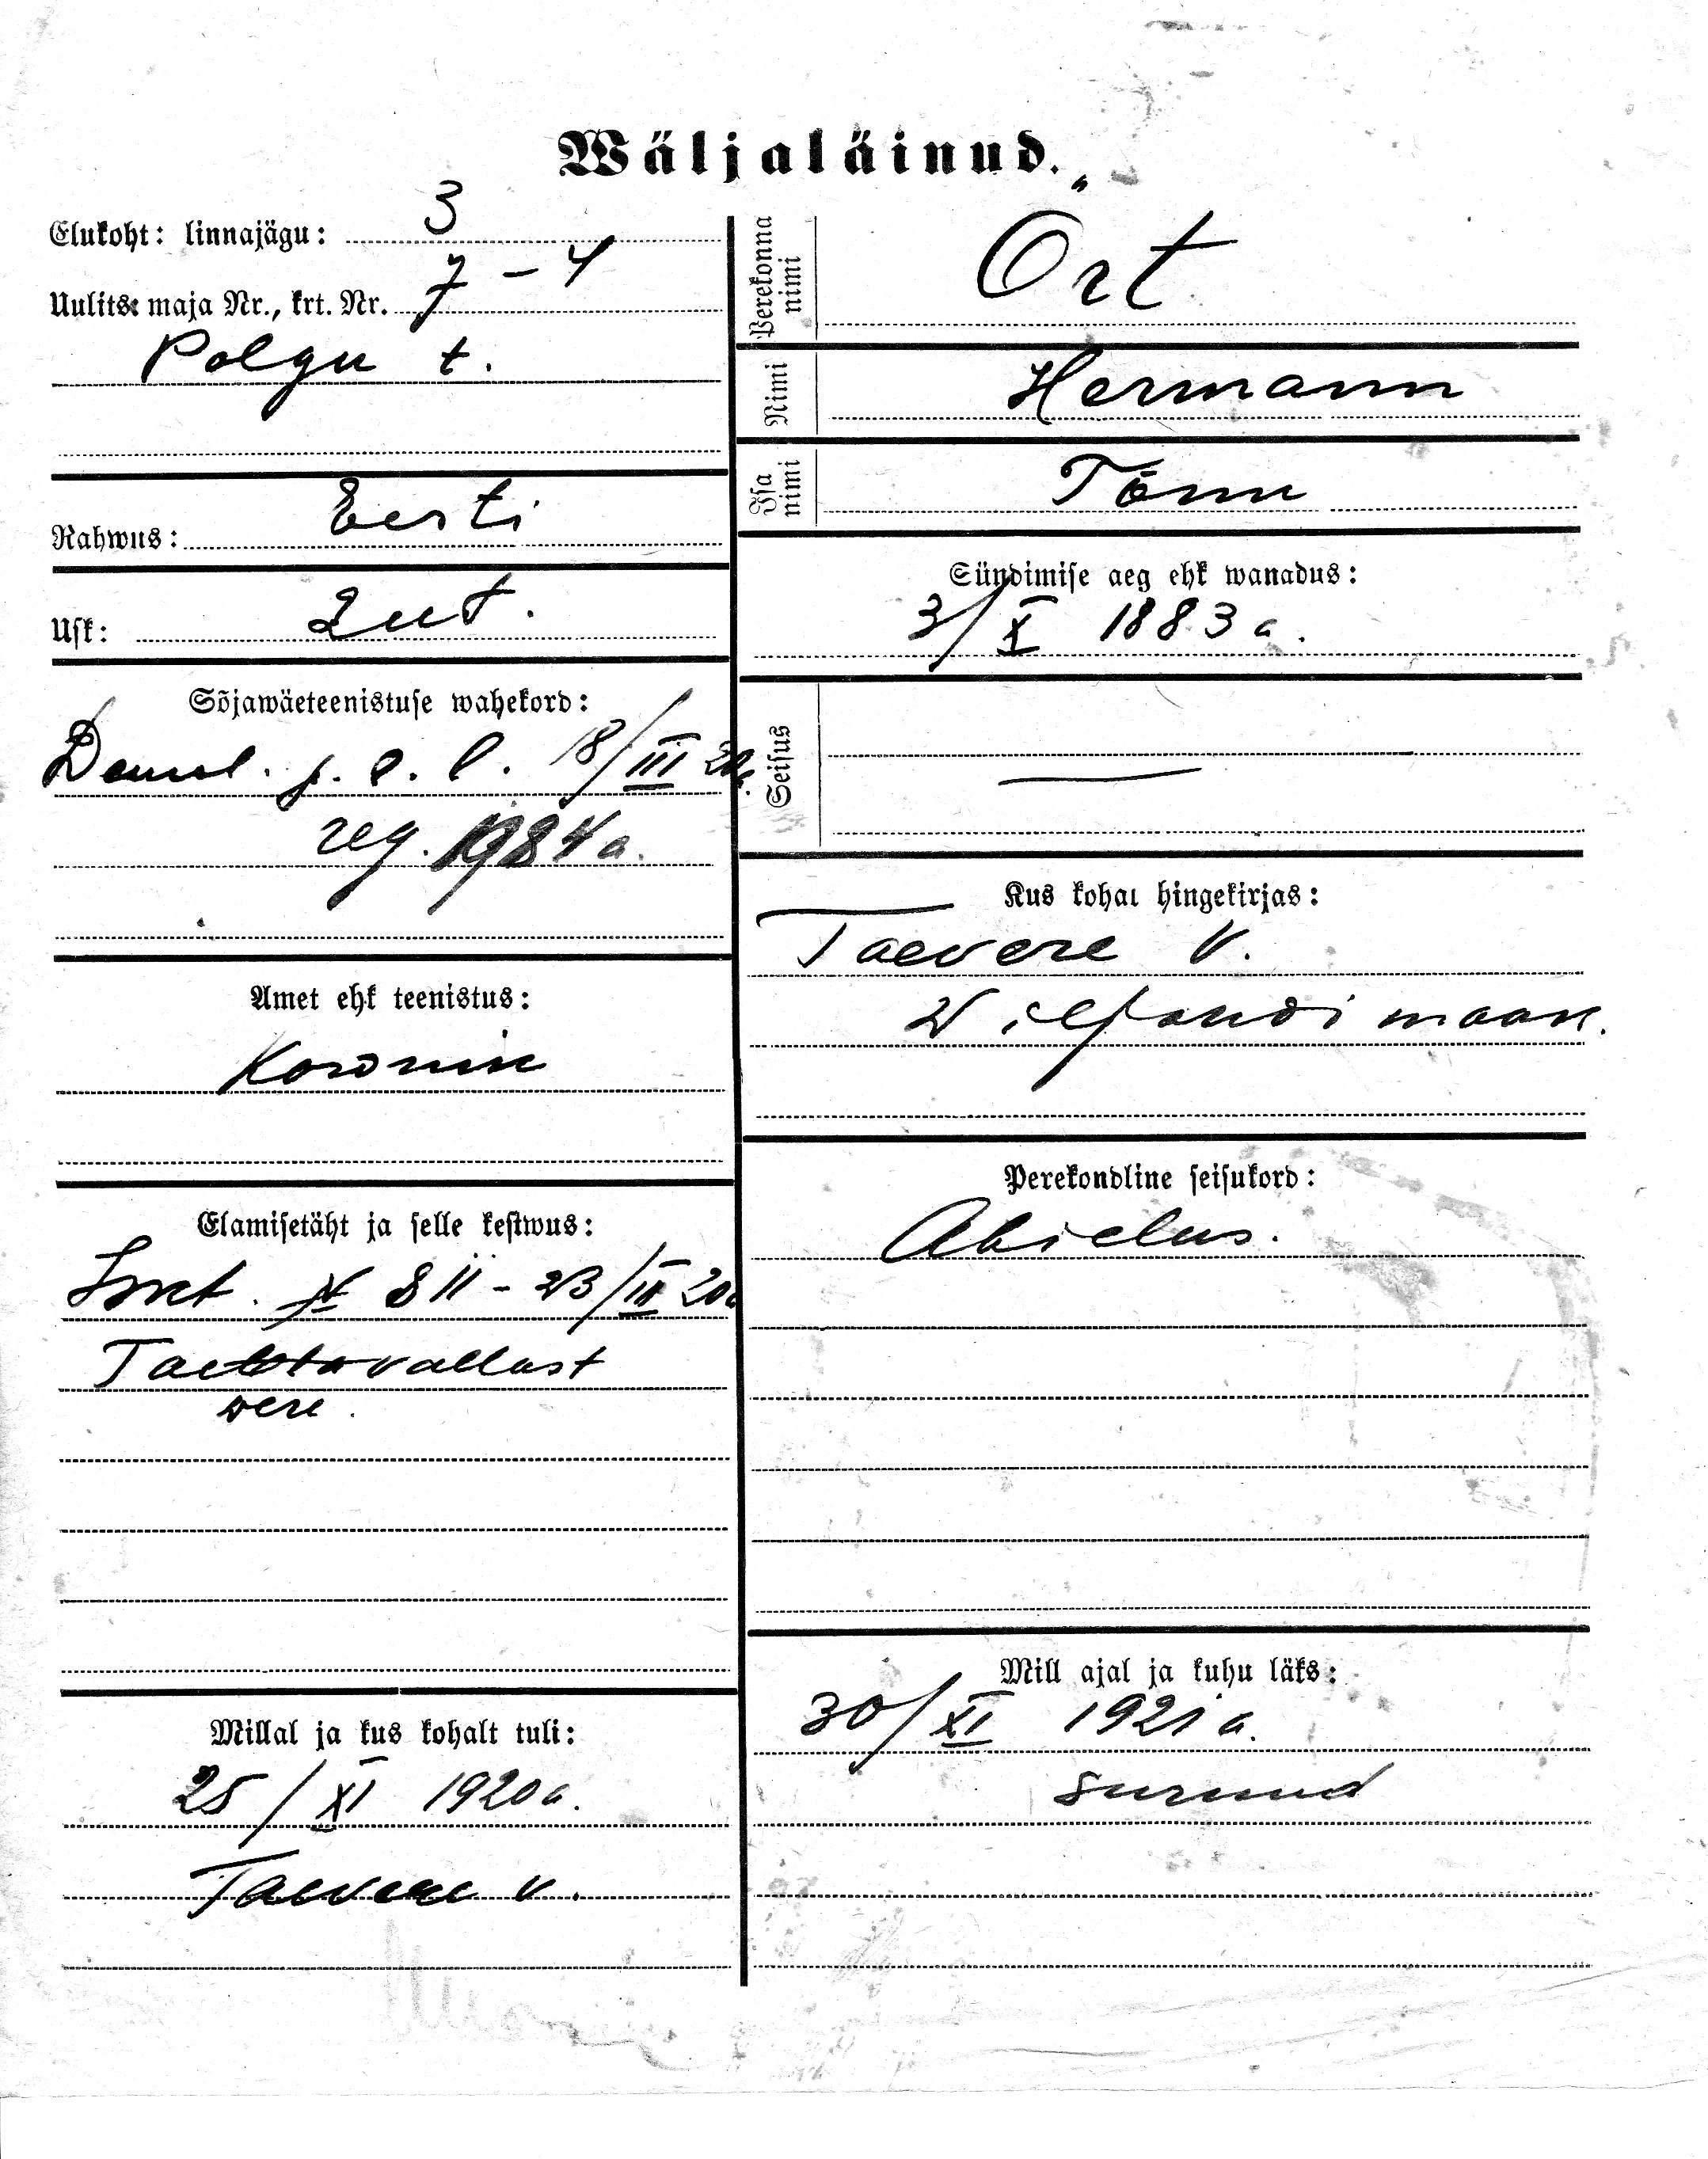 Wäljaläinud.
Elukoht: linnajägu: 3
Uulits: maja Nr., krt. Nr. 7 – 4
Polgu t.
Rahwus: Eesti
Usk: Lut.
Sõjawäeteenistuse wahekord:
Demol. j. e. l. 18/III 20a.
reg. 1984a.
Amet ehk teenistus:
Elamisetäht ja selle kestwus:
811 – 23/III 20a
Tae vallast
were.
Millal ja kus kohalt tuli:
25/XI 1920a.
Taevere v.
Perekonna nimi Ort
Nimi Hermann
Isa nimi Tõnu
Sündimise aeg ehk wanadus:
3/X 1883 a.
Seisus —
Kus kohal hingekirjas:
Taevere V.
Wiljandi maak.
Perekondline seisukord:
Abielus.
Mill ajal ja kuhu läks:
30/XI 1921 a.
surnud